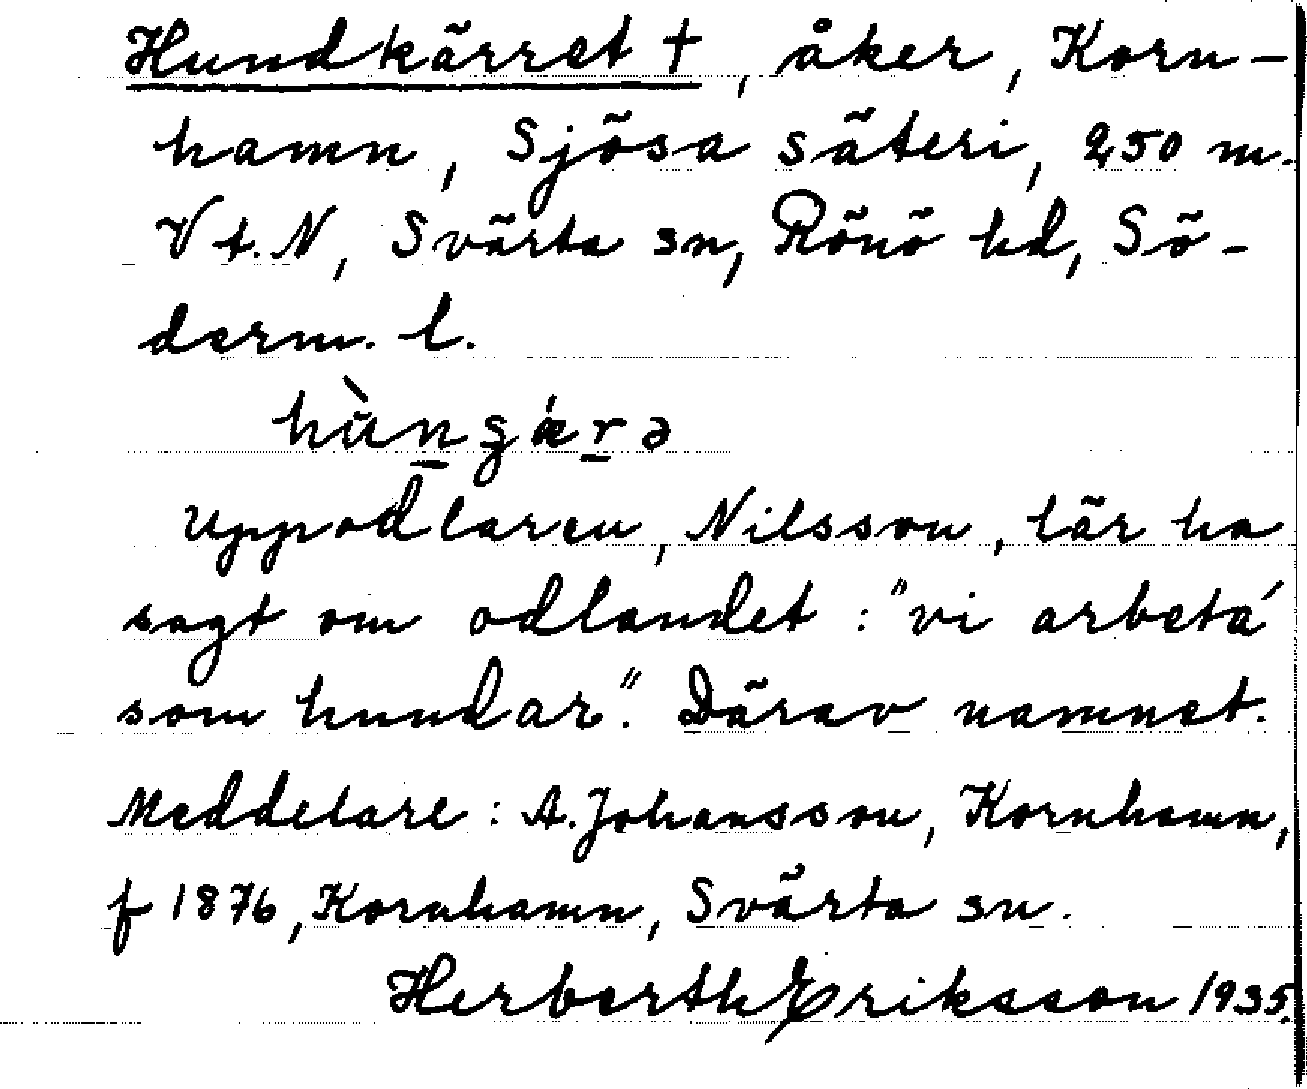 Hundkärret †, åker, Korn-
hamn, Sjösa säteri, 250 m.
V t. N, Svärta sn, Rönö hd, Sö-
derm. l.
hùngærə
Uppodlaren, Nilsson, lär ha
sagt om odlandet: "vi arbeta
som hundar". Därav namnet.
Meddelare: A. Johansson, Kornhamn,
f 1876, Kornhamn, Svärta sn.
Herberth Eriksson 1935.